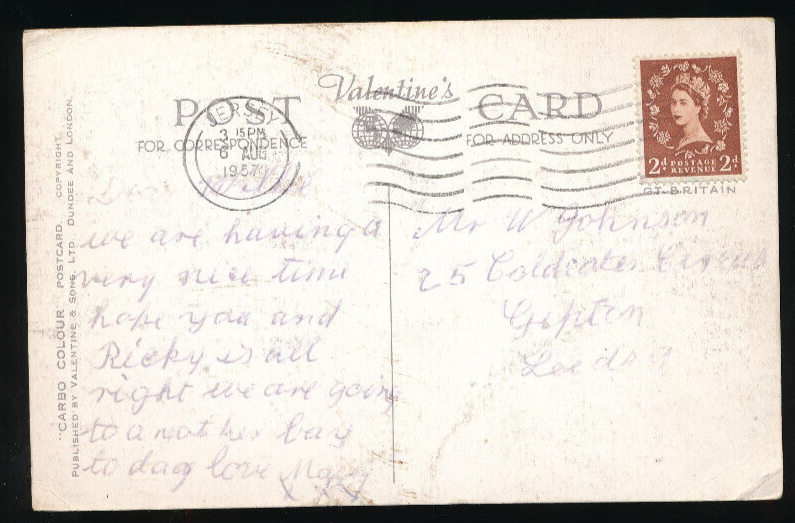 Valentine's
POST CARD
FOR CORRESPONDENCE
FOR ADDRESS ONLY
JERSEY
3 15PM
6 AUG
1957
2d POSTAGE REVENUE 2d
GT. BRITAIN
"CARBO COLOUR" POSTCARD COPYRIGHT
PUBLISHED BY VALENTINE & SONS, LTD. DUNDEE AND LONDON.
Dear Willie
we are having a
very nice time
hope you and
Ricky is all
right we are going
to another bay
to day love Mary
Mr W Johnson
25 Coldcotes Circus
Gipton
Leeds 9